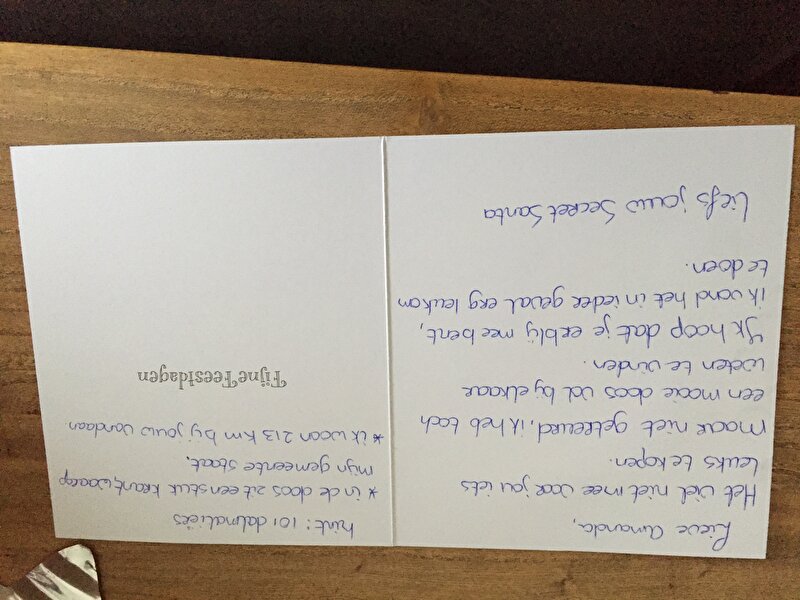 Lieve Amanda,
Het viel niet mee voor jou iets
leuks te kopen.
Maar niet getreurd, ik heb toch
een mooie doos vol by elkaar
weten te vinden.
Ik hoop dat je er blij mee bent,
ik vond het in ieder geval erg leuk om
te doen.
Liefs jouw Secret Santa
hint: 101 dalmatiërs
* in de doos zit een stuk krant, waarop
mijn gemeente staat.
* ik woon 213 km bij jouw vandaan
Fijne Feestdagen